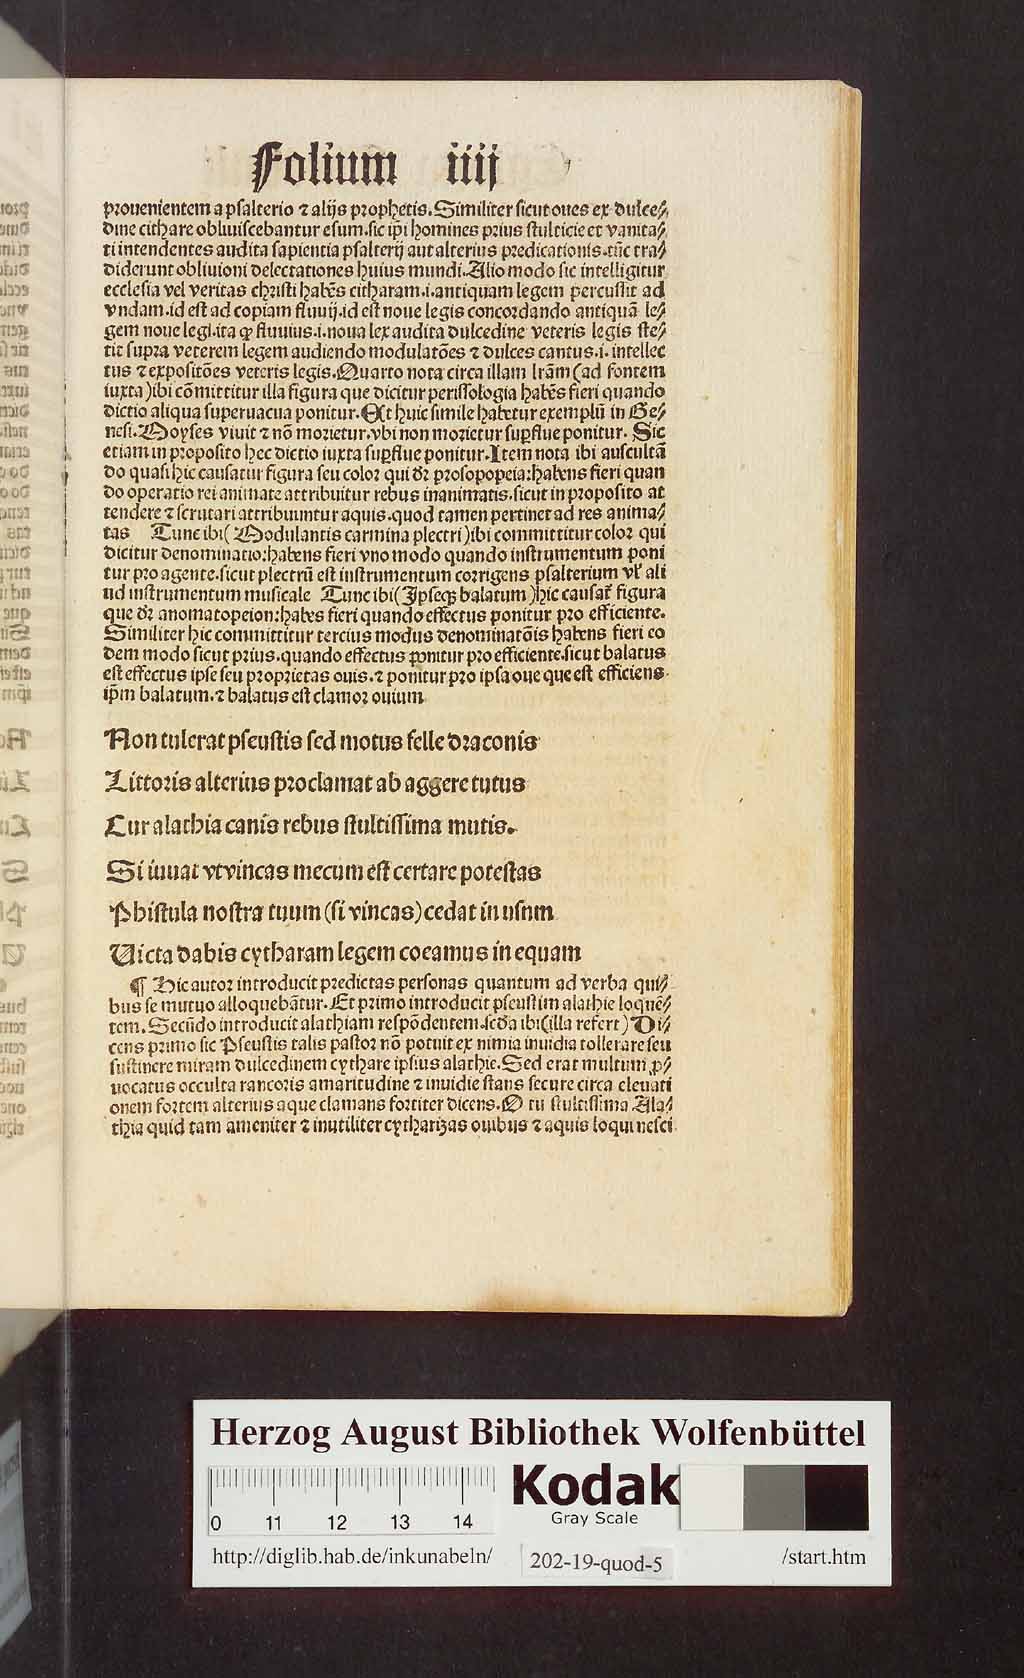 Folium iiij
prouenientem a psalterio ⁊ alijs prophetis. Similiter sicut oues ex dulce⸗
dine cithare obliuiscebantur esum. sic ip̄i homines prius stulticie et vanita⸗
ti intendentes audita sapientia psalterij aut alterius predicationis. tūc tra⸗
diderunt obliuioni delectationes huius mundi. Alio modo sic intelligitur
ecclesia vel veritas christi habēs citharam .i. antiquam legem percussit ad
vndam. id est ad copiam fluuij. id est noue legis concordando antiquā le⸗
gem noue legi. ita ꝙ fluuius .i. noua lex audita dulcedine veteris legis ste⸗
tit supra veterem legem audiendo modulatōes ⁊ dulces cantus .i. intellec
tus ⁊ expositōes veteris legis. Quarto nota circa illam lrām (ad fontem
iuxta) ibi cōmittitur illa figura que dicitur perissologia habēs fieri quando
dictio aliqua superuacua ponitur. Et huic simile habetur exemplū in Ge⸗
nesi. Moyses viuit ⁊ nō morietur. vbi non morietur suꝑflue ponitur. Sic
etiam in proposito hec dictio iuxta suꝑflue ponitur. Item nota ibi auscultā
do quasi hic causatur figura seu color qui dr̄ prosopopeia: habens fieri quan
do operatio rei animate attribuitur rebus inanimatis. sicut in proposito at
tendere ⁊ scrutari attribuuntur aquis. quod tamen pertinet ad res anima⸗
tas Tunc ibi (Modulantis carmina plectri) ibi committitur color qui
dicitur denominatio: habens fieri vno modo quando instrumentum poni
tur pro agente. sicut plectrū est instrumentum corrigens psalterium vl' ali
ud instrumentum musicale Tunc ibi (Ipseqꝫ balatum) hic causat᷑ figura
que dr̄ anomatopeion: habēs fieri quando effectus ponitur pro efficiente.
Similiter hic committitur tercius modus denominatōis habens fieri eo
dem modo sicut prius. quando effectus ponitur pro efficiente. sicut balatus
est effectus ipse seu proprietas ouis. ⁊ ponitur pro ipsa oue que est efficiens
ip̄m balatum. ⁊ balatus est clamor ouium
Non tulerat pseustis sed motus felle draconis
Littoris alterius proclamat ab aggere tutus
Cur alathia canis rebus stultissima mutis.
Si iuuat vt vincas mecum est certare potestas
Phistula nostra tuum (si vincas) cedat in usum
Uicta dabis cytharam legem coeamus in equam
¶ Hic autor introducit predictas personas quantum ad verba qui⸗
bus se mutuo alloquebātur. Et primo introducit pseustim alathie loquē⸗
tem. Secūdo introducit alathiam respōdentem. scd̄a ibi (illa refert) Di⸗
cens primo sic Pseustis talis pastor nō potuit ex nimia inuidia tollerare seu
sustinere miram dulcedinem cythare ipsius alathie. Sed erat multum ꝓ⸗
uocatus occulta rancoris amaritudine ⁊ inuidie stans secure circa eleuati
onem fortem alterius aque clamans fortiter dicens. O tu stultissima Ala⸗
thia quid tam ameniter ⁊ inutiliter cytharizas ouibus ⁊ aquis loqui nesci
Herzog August Bibliothek Wolfenbüttel
0 11 12 13 14
Kodak
Gray Scale
http://diglib.hab.de/inkunabeln/ 202-19-quod-5 /start.htm